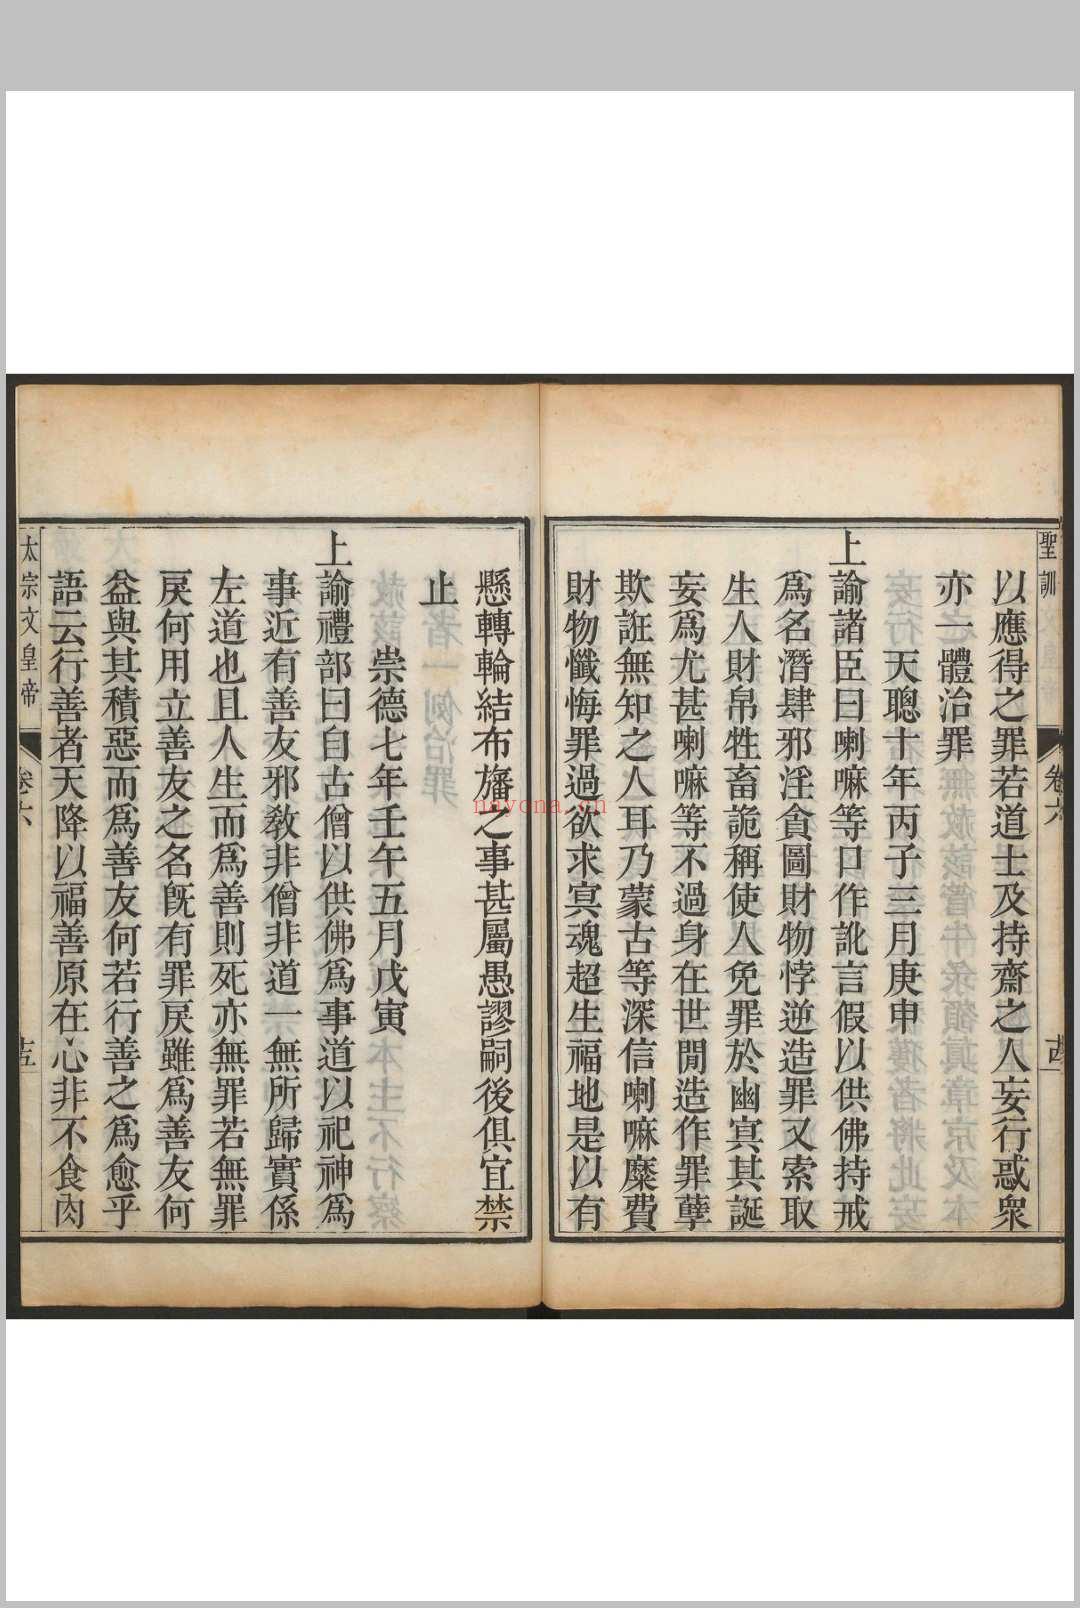 聖訓
卷六
以應得之罪若道士及持齋之人妄行惑衆
亦一體治罪
天聰十年丙子三月庚申
上諭諸臣曰喇嘛等口作訛言假以供佛持戒
爲名潛肆邪淫貪圖財物悖逆造罪又索取
生人財帛牲畜詭稱使人免罪於幽冥其誕
妄爲尤甚喇嘛等不過身在世閒造作罪孽
欺誑無知之人耳乃蒙古等深信喇嘛糜費
財物懺悔罪過欲求冥魂超生福地是以有
懸轉輪結布旛之事甚屬愚謬嗣後俱宜禁
止
崇德七年壬午五月戊寅
上諭禮部曰自古僧以供佛爲事道以祀神爲
事近有善友邪教非僧非道一無所歸實係
左道也且人生而爲善則死亦無罪若無罪
戾何用立善友之名旣有罪戾雖爲善友何
益與其積惡而爲善友何若行善之爲愈乎
語云行善者天降以福善原在心非不食肉
太宗文皇帝
卷六
nayona.cn